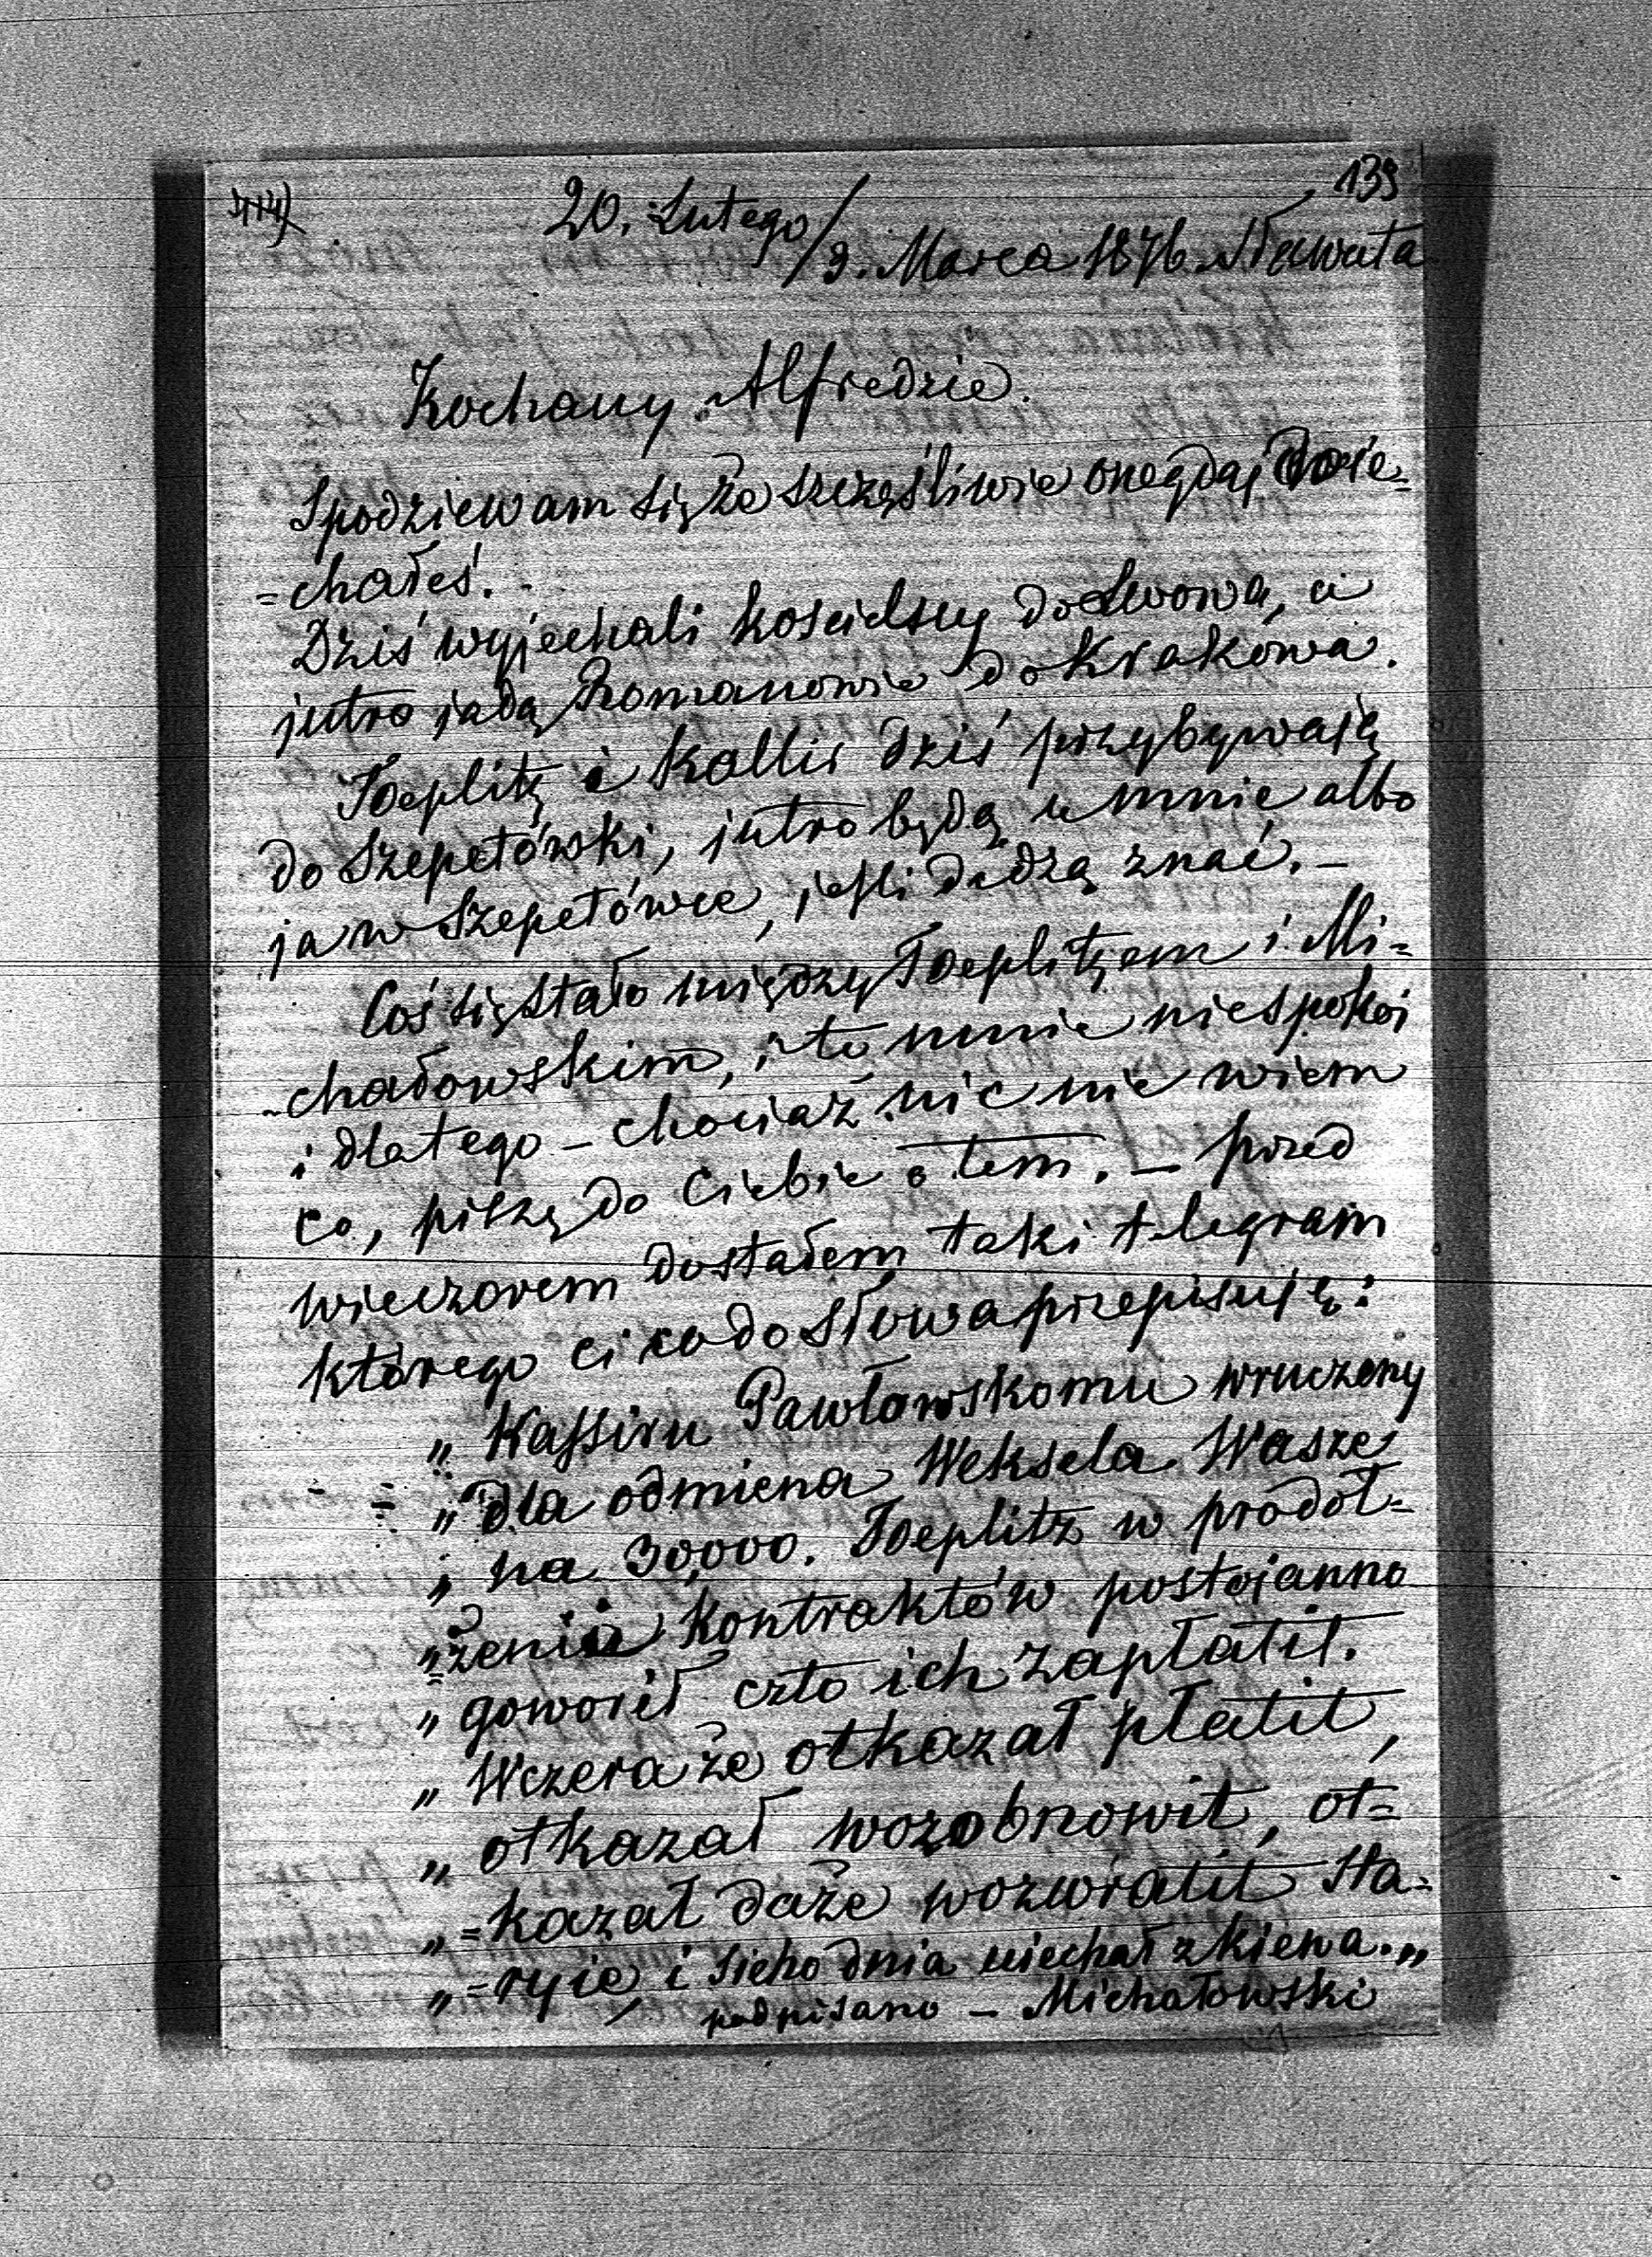 139
20. Lutego/
/3. Marca 1876. Sławuta
Kochany Alfredzie.
Spodziewam się że szczęśliwie onegdaj doje=
=chałeś. -
Dziś wyjechali Kościelscy do Lwowa, a
jutro jadą Romanowie do Krakowa.
Toeplitz i Kallir dziś przybywają
do Szepetówki, jutro będą u mnie albo
ja w Szepetówce, jeśli dadzą znać. -
Coś się stało między Toeplitzem i Mi=
=chałowskim, i to mnie niespokoi
i dlatego - chociaż nic nie wiem
co, piszę do Ciebie o tem. - przed
wieczorem dostałem taki telegram
którego ci co do słowa przepisuję:
„ Kassiru Pawłowskomu wruczeny
„ dla odmiena Weksela Wasze
„ na 30,000. Toeplitz w prodoł=
„=żeniu Kontraktów postojanno
„ goworił czto ich zapłatit.
„ Wczera że otkazał płatit,
„ otkazał wozobnowit, ot=
„=kazał daże wozwratit sta=
„=ryie, i sieho dnia uiechał z Kiewa.„
podpisano - Michałowski